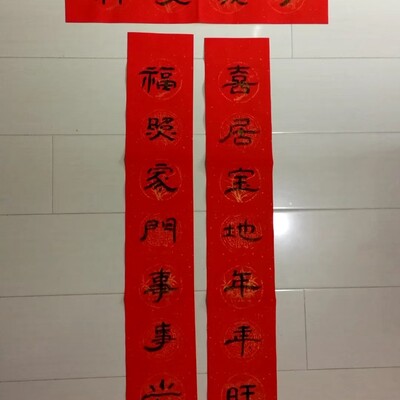 喜居宝地年年旺
福照家門事事